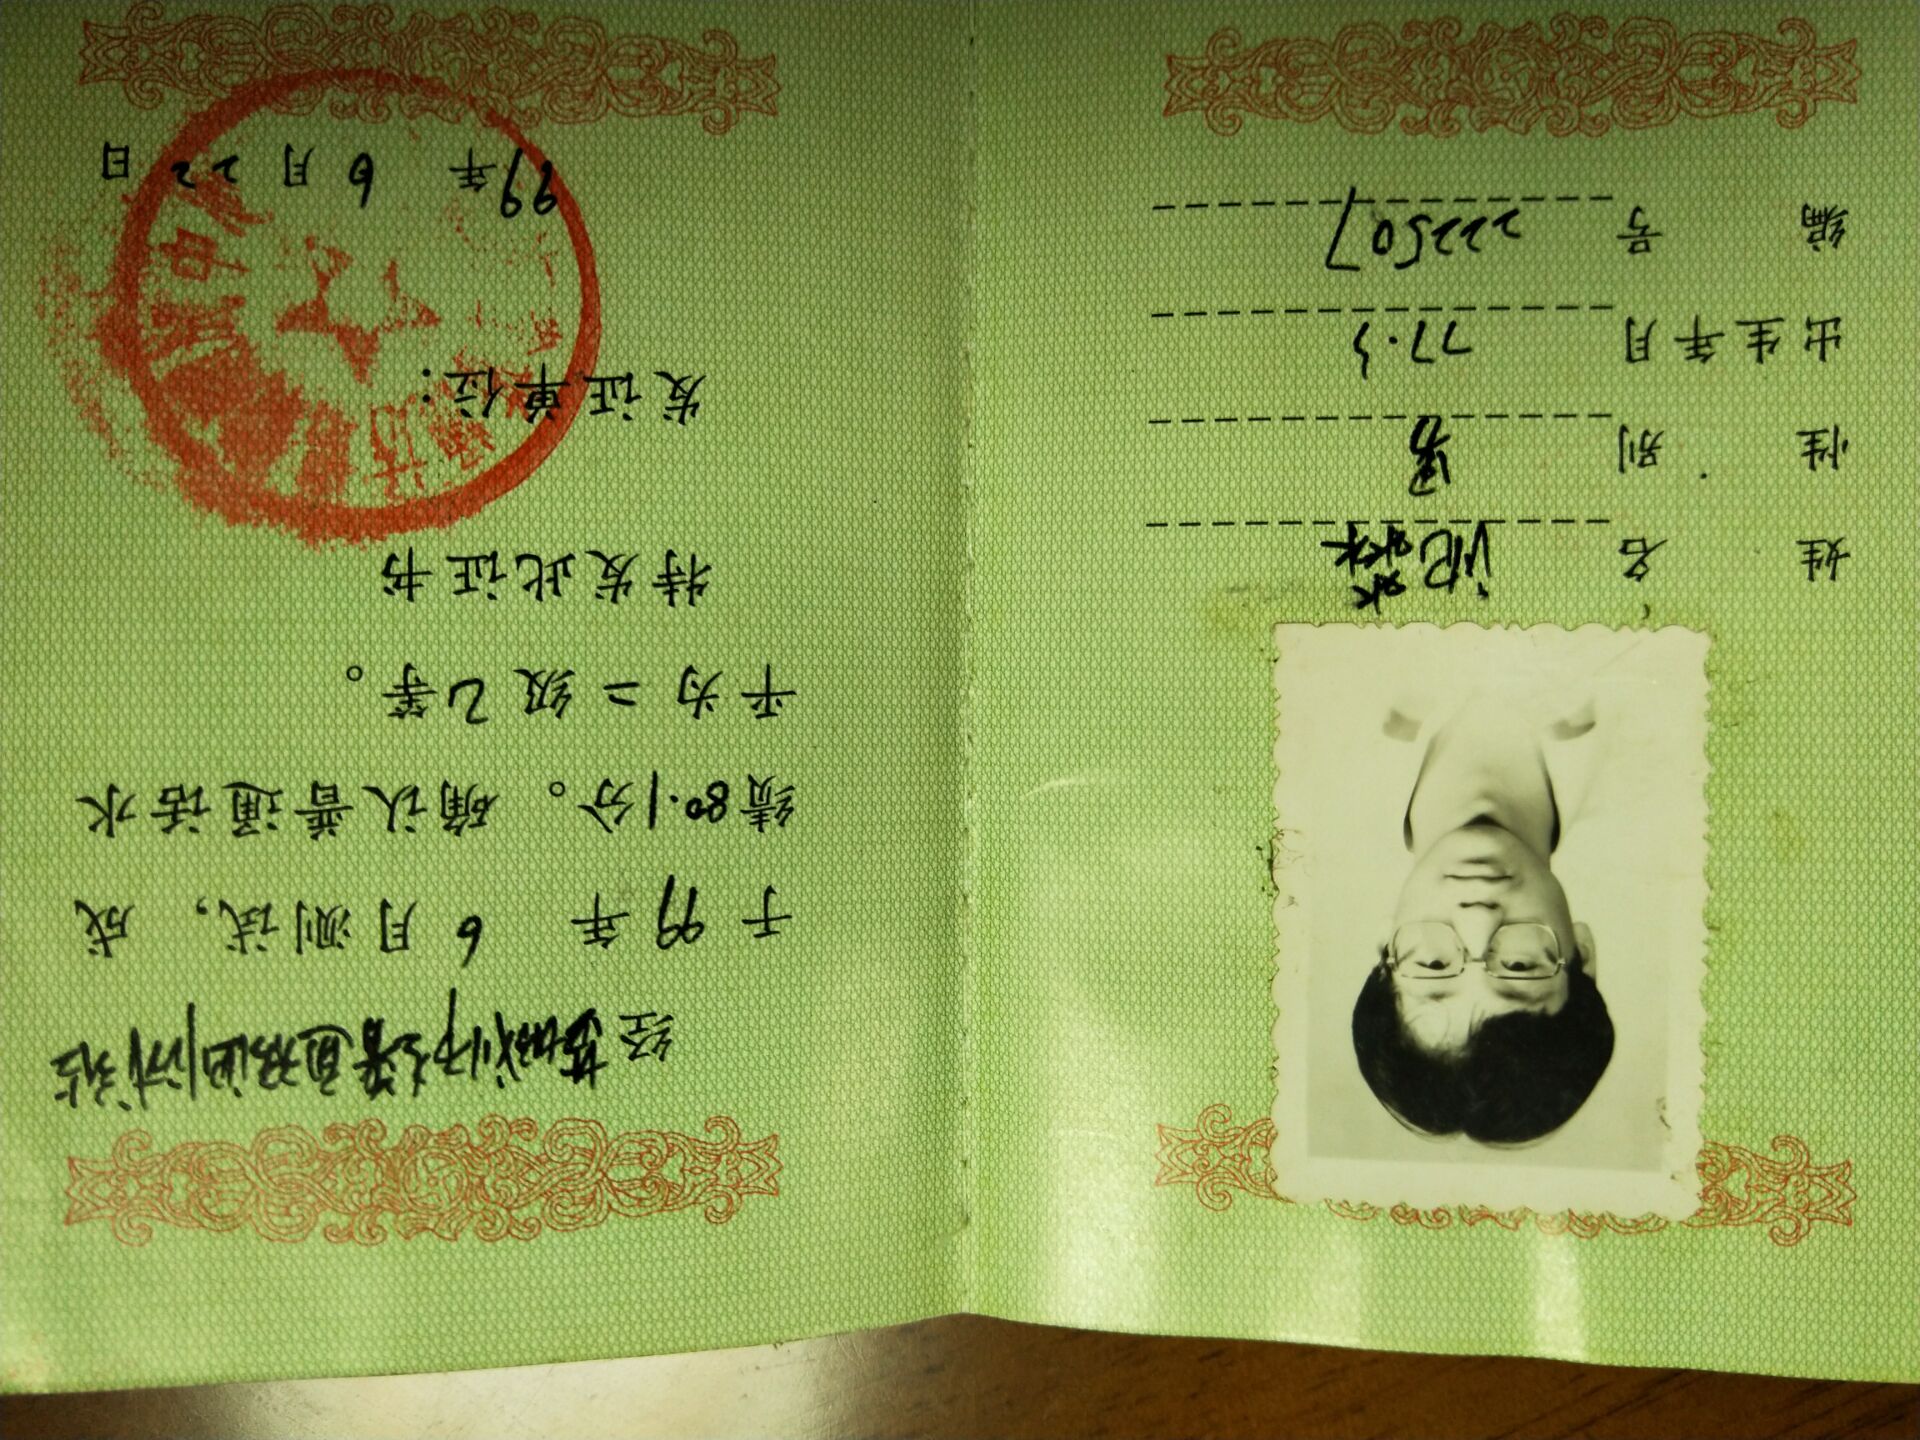 姓名
性别 男
出生年月 77.3
编号 222507
经 测试站
于99年 6月测试，成
绩80.1分。确认普通话水
平为二级乙等。
特发此证书
发证单位：
99年 6月22日